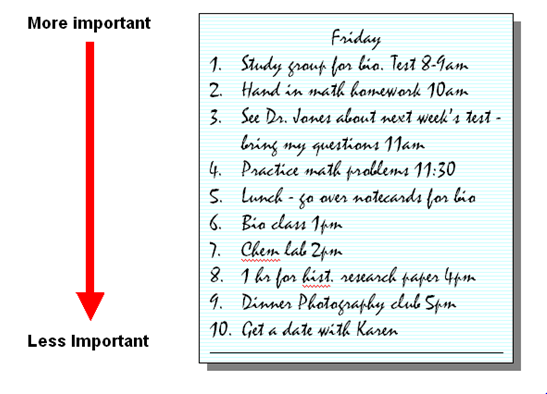 More important
Friday
1. Study group for bio. Test 8-9am
2. Hand in math homework 10am
3. See Dr. Jones about next week's test -
bring my questions 11am
4. Practice math problems 11:30
5. Lunch - go over notecards for bio
6. Bio class 1pm
7. Chem lab 2pm
8. 1 hr for hist. research paper 4pm
9. Dinner Photography club 5pm
10. Get a date with Karen
Less Important